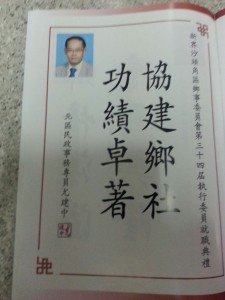 新界沙頭角區鄉事委員會第三十四屆執行委員就職典禮
協建鄉社
功績卓著
北區民政事務專員尤建中